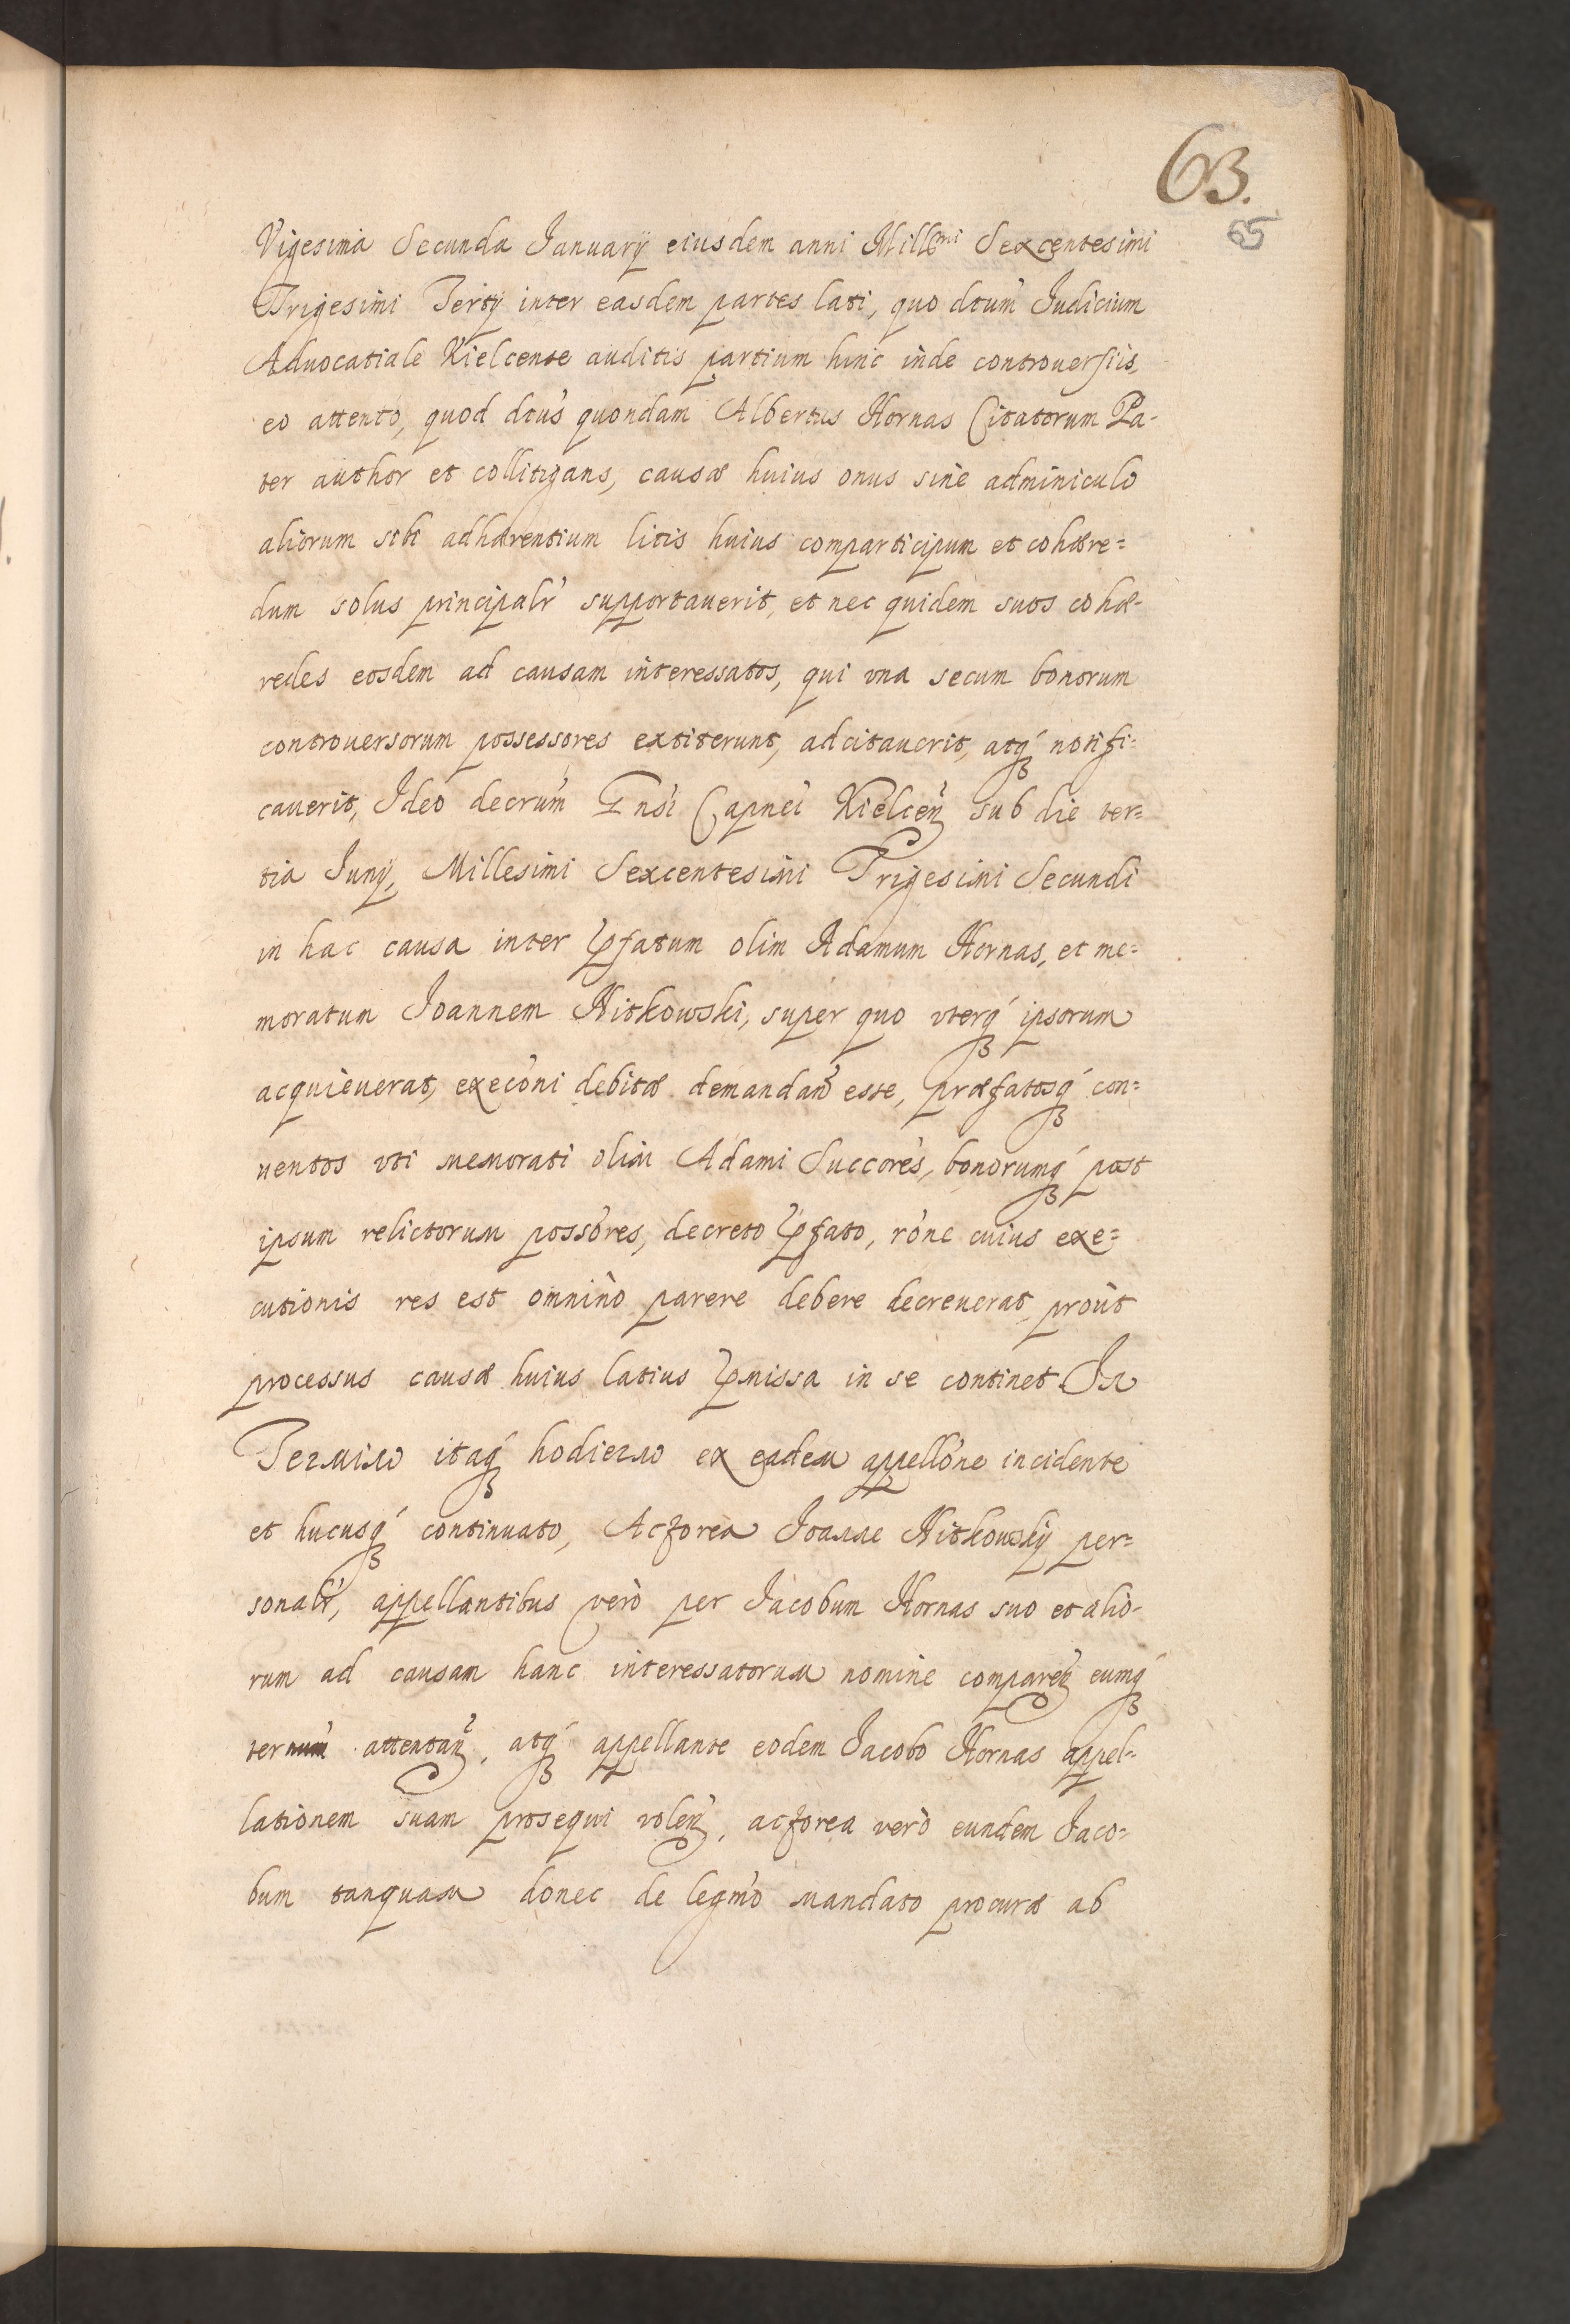 63.
65
Vigesima Secunda Januarÿ eiusdem anni Mill̃mi Sexcentesimi
Trigesimi Tertÿ inter easdem partes lati, quo dtum̃ Judicium
Aduocatiale Kielcense auditis partium hinc inde controuersiis,
eo attento, quod dtus̃ quondam Albertus Hornas Citatorum Pa-
ter author et collitigans, causæ huius onus sine adminiculo
aliorum sibi adhærentium litis huius comparticipum et cohære=
dum solus principalr̃ supportauerit, et nec quidem suos cohæ-
redes eosdem ad causam interessatos, qui vna secum bonorum
controuersorum possessores extiterunt, adcitauerit, atq́ notifi=
cauerit, Ideo decrum̃ Capnei Kielceñ sub die ter=
tia Junÿ, Millesimi Sexcentesimi Trigesimi Secundi
in hac causa inter p̃fatum olim Adamum Hornas, et me=
moratum Joannem Nitkowski, super quo vterq́ ipsorum
acquieuerat, execõni debitæ demandañ esse, præfatosq́ con=
uentos vti memorati olim Adami Succorẽs, bonorumq́ post
ipsum relictorum possõres, decreto p̃fato, rõne cuius exe=
cutionis res est omninò parere debere decreuerat, proùt
processus causæ huius latius p̃missa in se continet. In
Termino itaq́ hodierno ex eadem appellõne incidente
et hucusq́ continuato, Actorea Joanne Nitkowskÿ per=
sonalr̃, appellantibus verò per Jacobum Hornas suo et alio-
rum ad causam hanc interessatorum nomine compareñ eumq́
ternum̃ attentañ, atq́ appellante eodem Jacobo Hornas appel=
lationem suam prosequi voleñ, actorea verò eundem Jaco=
bum tanquam donec de legmõ mandato procuræ ab